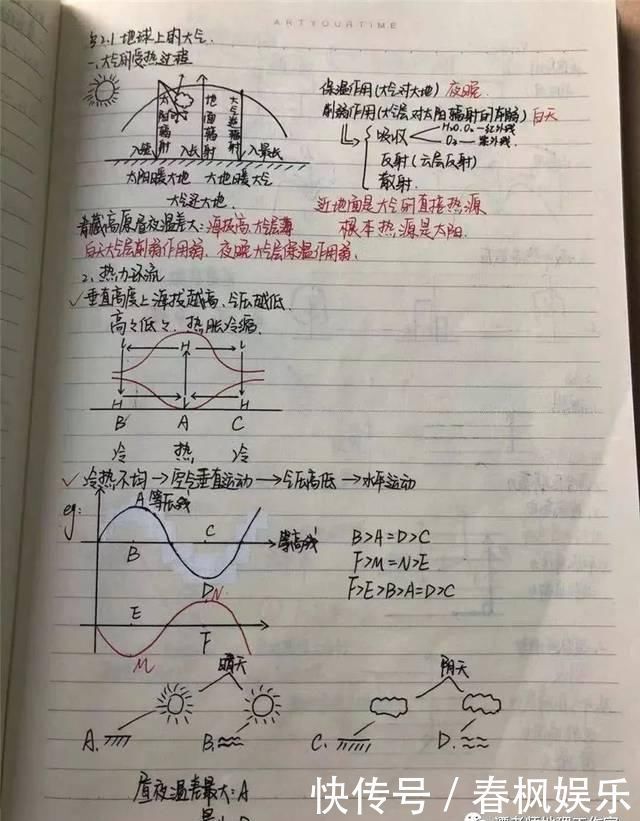 ARTYOURTIME
§2.1 地球上的大气.
一.大气的受热过程
太阳辐射
地面辐射
大气逆辐射
入长
太阳暖大地 大地暖大气
大气还大地
保温作用(大气对大地) 夜晚
削弱作用(大气层对太阳辐射的削弱) 白天
吸收
H₂O.O₂—红外线
O₃—紫外线.
反射(云层反射)
散射.
近地面是大气的直接热源
根本热源是太阳.
青藏高原昼夜温差大:海拔高.大气层薄
白天大气层削弱作用弱.夜晚大气层保温作用弱.
2.热力环流
✓垂直高度上海拔越高.气压越低.
高高低低.热胀冷缩.
L H L
H L H
B A C
冷 热 冷
✓冷热不均→空气垂直运动→气压高低→水平运动
eg:
A 等压线
B C 等高线
D
N
E F
M
B>A=D>C
F>M=N>E
F>E>B>A=D>C
晴天 阴天
A. B. C. D.
昼夜温差最大:A
快传号/春枫娱乐